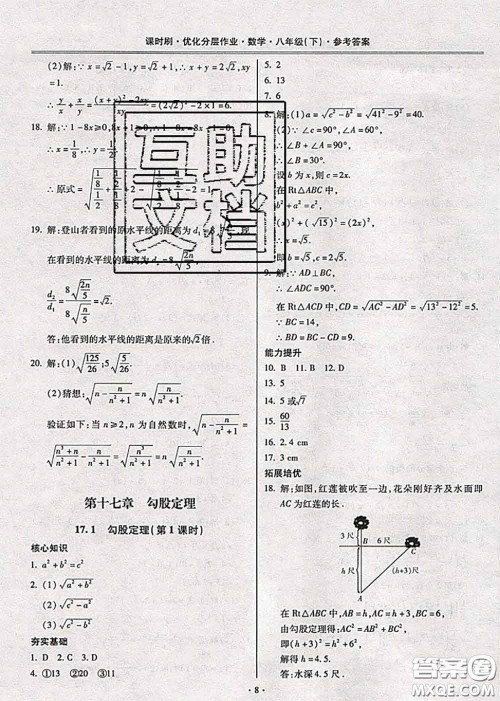 课时刷·优化分层作业·数学·八年级(下)·参考答案
(2)解:∵x=√2-1,y=√2+1,
∴x+y=2√2,xy=1.
∴y/x+x/y=(x²+y²)/xy=((x+y)²-2xy)/xy=(2√2)²-2×1=6.
18. 解:∵1-8x≥0,8x-1≥0,∴1-8x=8x-1=0,
∴x=1/8
∴原式=
19. 解:登山者看到的原水平线的距离为d₁=8√(n/5),现
在看到的水平线的距离为d₂=8√(2n/5)
d₂/d₁=8√(2n/5)/8√(n/5)=√2.
答:他看到的水平线的距离是原来的√2倍.
20. 解:(1)√(125/26);5√(5/26)
(2)猜想:√(n-n/(n²+1))=n√(n/(n²+1))
验证如下:当n≥2,n为自然数时,√(n-n/(n²+1))=
√((n³+n)/(n²+1)-n/(n²+1))=√(n³/(n²+1))=n√(n/(n²+1))
第十七章 勾股定理
17.1 勾股定理(第1课时)
核心知识
1. a²+b²=c²
2. (1)√(a²+b²)
(2)√(c²-a²)
(3)√(c²-b²)
夯实基础
1. D 2. C 3. D
4. ①13 ②20 ③11
5. 2
6. 13
7. 6
8. 解:(1)a=√(c²-b²)=√(41²-9²)=40.
(2)∵∠C=90°,
∴∠B+∠A=90°.
∵∠A=60°,∴∠B=30°.
设b为x,则c=2x.
在Rt△ABC中,
b²+a²=c²
(x)²+(√15)²=(2x)²
x=√5
即b=√5,c=2√5.
9. 解:∵AD⊥BC,
∴∠ADC=90°.
在Rt△ACD中,CD=√(AC²-AD²)=√(13²-12²)=5.
∵BC=14,
∴BD=BC-CD=9.
能力提升
10. B 11. B 12. D
13. 5
14. 5或√7
15. 60/13
16. 2.4 cm
17. 3 cm
拓展培优
18. 解:如图,红莲被吹至一边,花朵刚好齐及水面即
AC为红莲的长.
3尺
B 6尺 C
h尺 (h+3)尺
A
在Rt△ABC中,AB=h,AC=h+3,BC=6,
由勾股定理得:AC²=AB²+BC²,
即(h+3)²=h²+6².
解得:h=4.5.
答:水深4.5尺.
·8·
互助
文档
答案圈
MXQE.COM